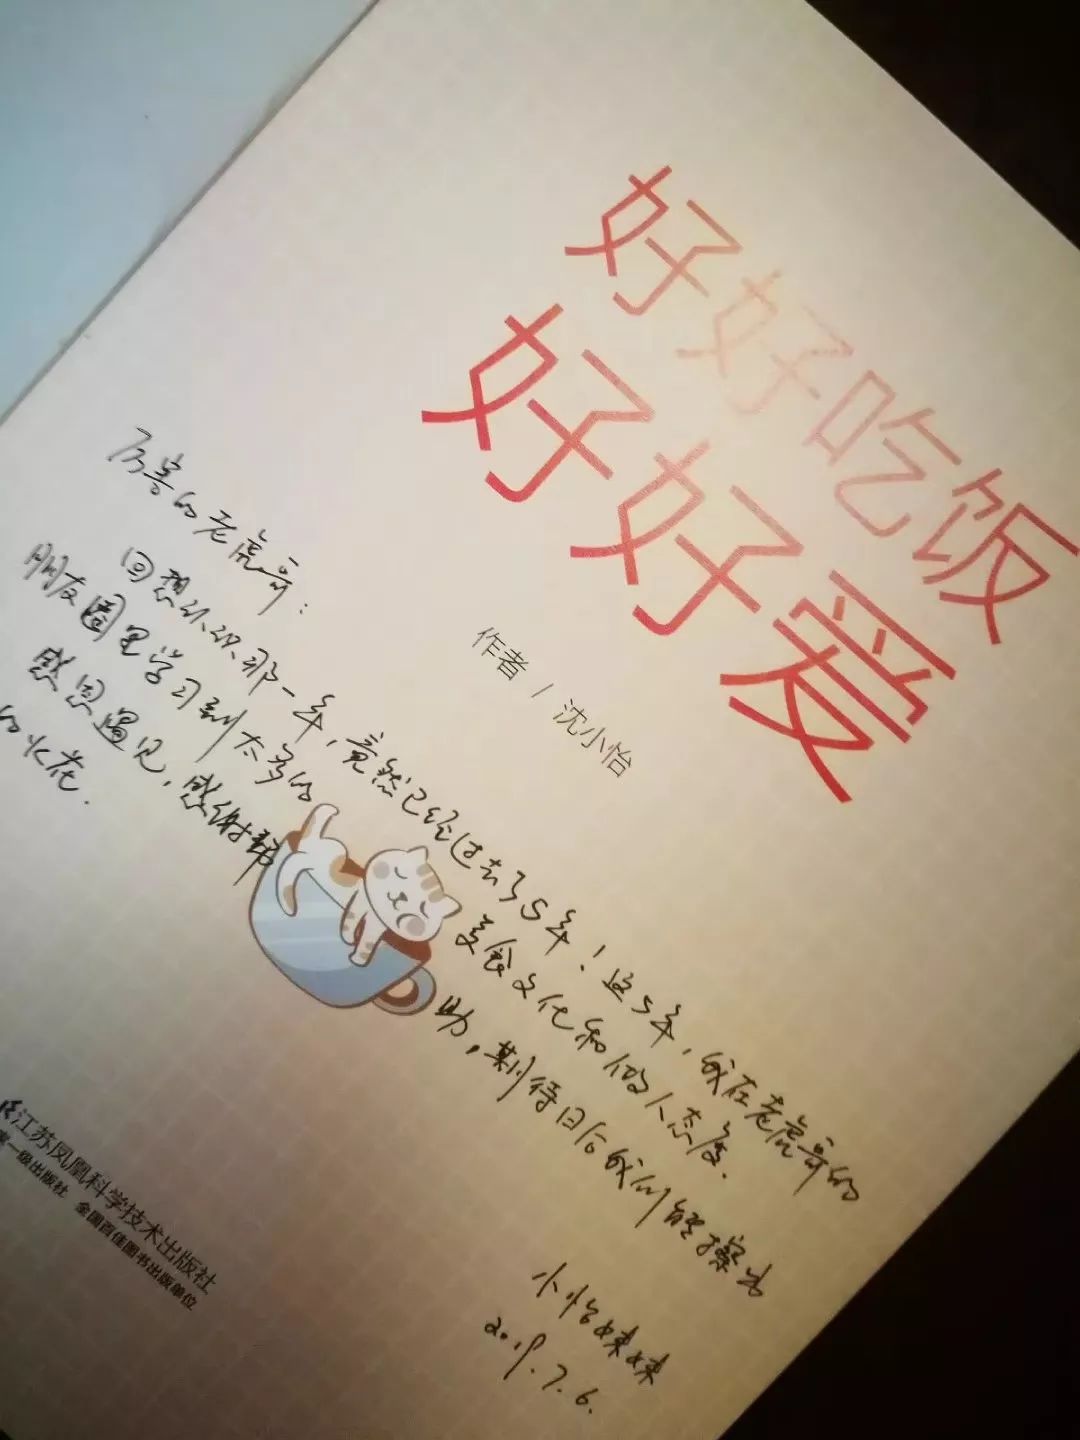 好好吃饭
好好爱
作者 / 沈小怡
的老虎哥：
回想认识那一年，竟然已经过去了5年！这5年，我在老虎哥的
朋友圈里学习到太多的美食文化和做人态度.
感恩遇见，感谢帮助，期待日后我们能擦出
的火花.
小怡妹妹
2019.7.6.
江苏凤凰科学技术出版社
家一级出版社 全国百佳图书出版单位